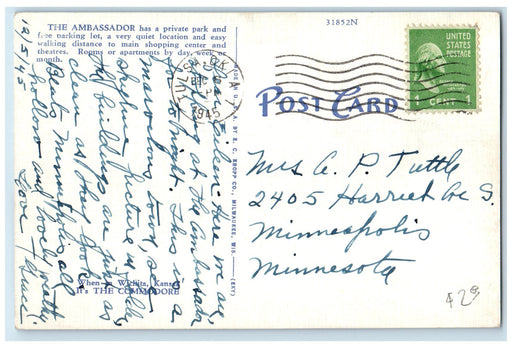 THE AMBASSADOR has a private park and
free parking lot, a very quiet location and easy
walking distance to main shopping center and
theatres. Rooms or apartments by day, week or
month.
31852N
12/5/45
Dear Eileen: Here we are,
stopping at the Ambassador
for tonight. This is a
marvelous town, see
skyline picture on
The buildings are just as
clean as they look.
But Minneapolis all
and lovely with
Love
Grace
When in Wichita, Kansas
It's THE COMMODORE
MADE IN U.S.A. BY E. C. KROPP CO., MILWAUKEE, WIS. (EXY)
POST CARD
1945
UNITED STATES
POSTAGE
1 CENT 1
Mrs A. P. Tuttle
2405 Harriet Ave S.
Minneapolis
Minnesota